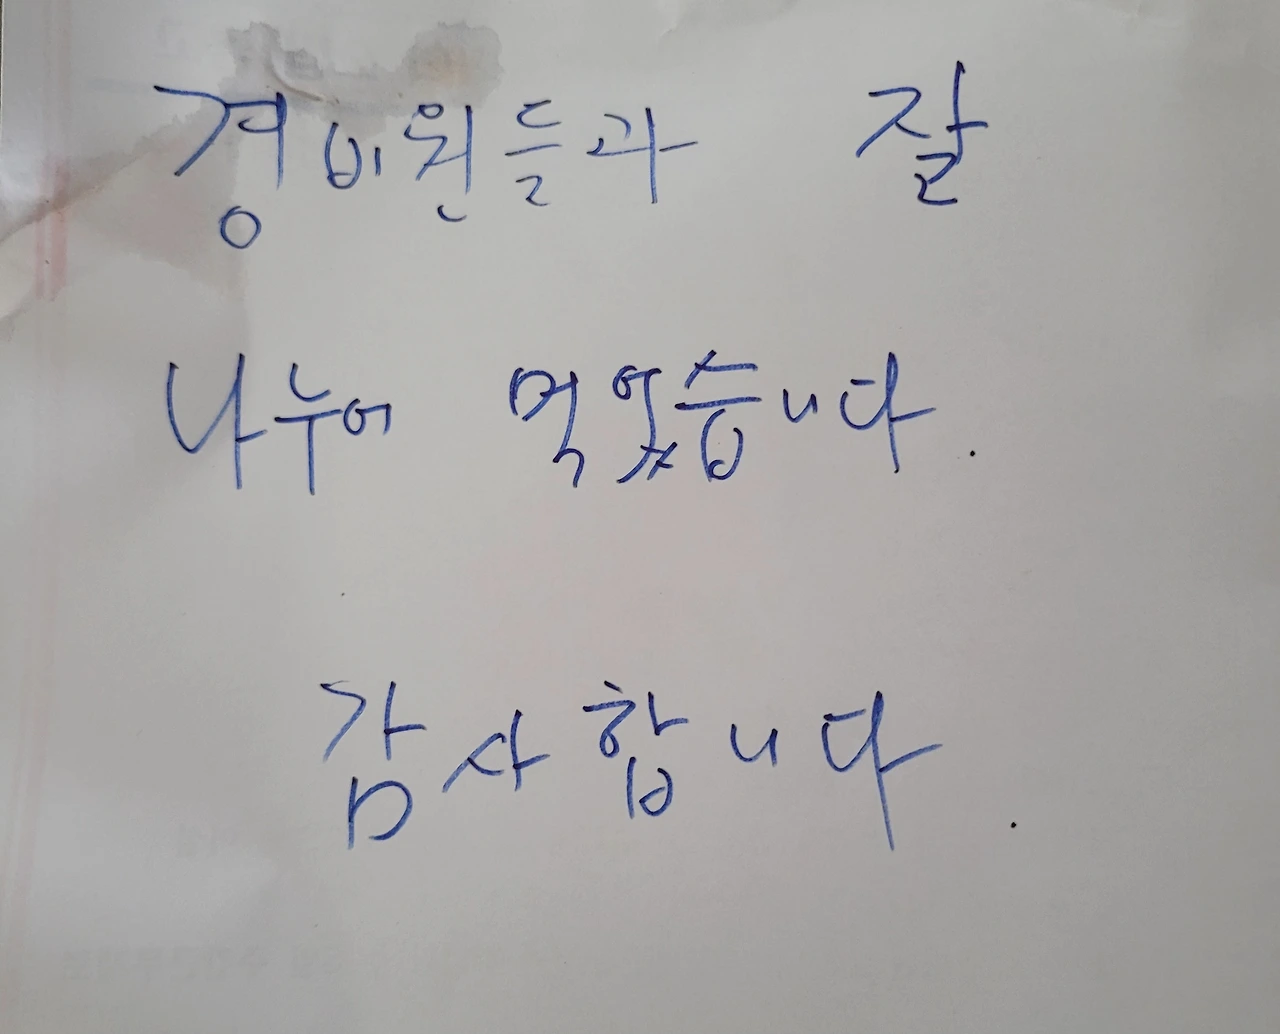 경비원들과 잘
나누어 먹었습니다.
감사합니다.